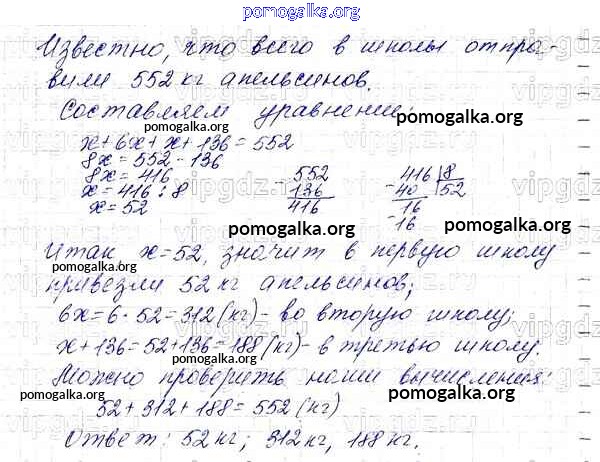 pomogalka.org
Известно, что всего в школы отпра-
вили 552 кг апельсинов.
Составляем уравнение:
pomogalka.org
pomogalka.org
x + 6x + x + 136 = 552
8x = 552 - 136
8x = 416
x = 416 : 8
x = 52
- 552
136
416
416 | 8
- 40 | 52
16
- 16
pomogalka.org
pomogalka.org
Итак, x = 52, значит в первую школу
pomogalka.org
привезли 52 кг апельсинов;
pomogalka.org
6x = 6 · 52 = 312 (кг) - во вторую школу;
x + 136 = 52 + 136 = 188 (кг) - в третью школу.
pomogalka.org
Можно проверить наши вычисления:
pomogalka.org
pomogalka.org
52 + 312 + 188 = 552 (кг)
Ответ: 52 кг; 312 кг, 188 кг.